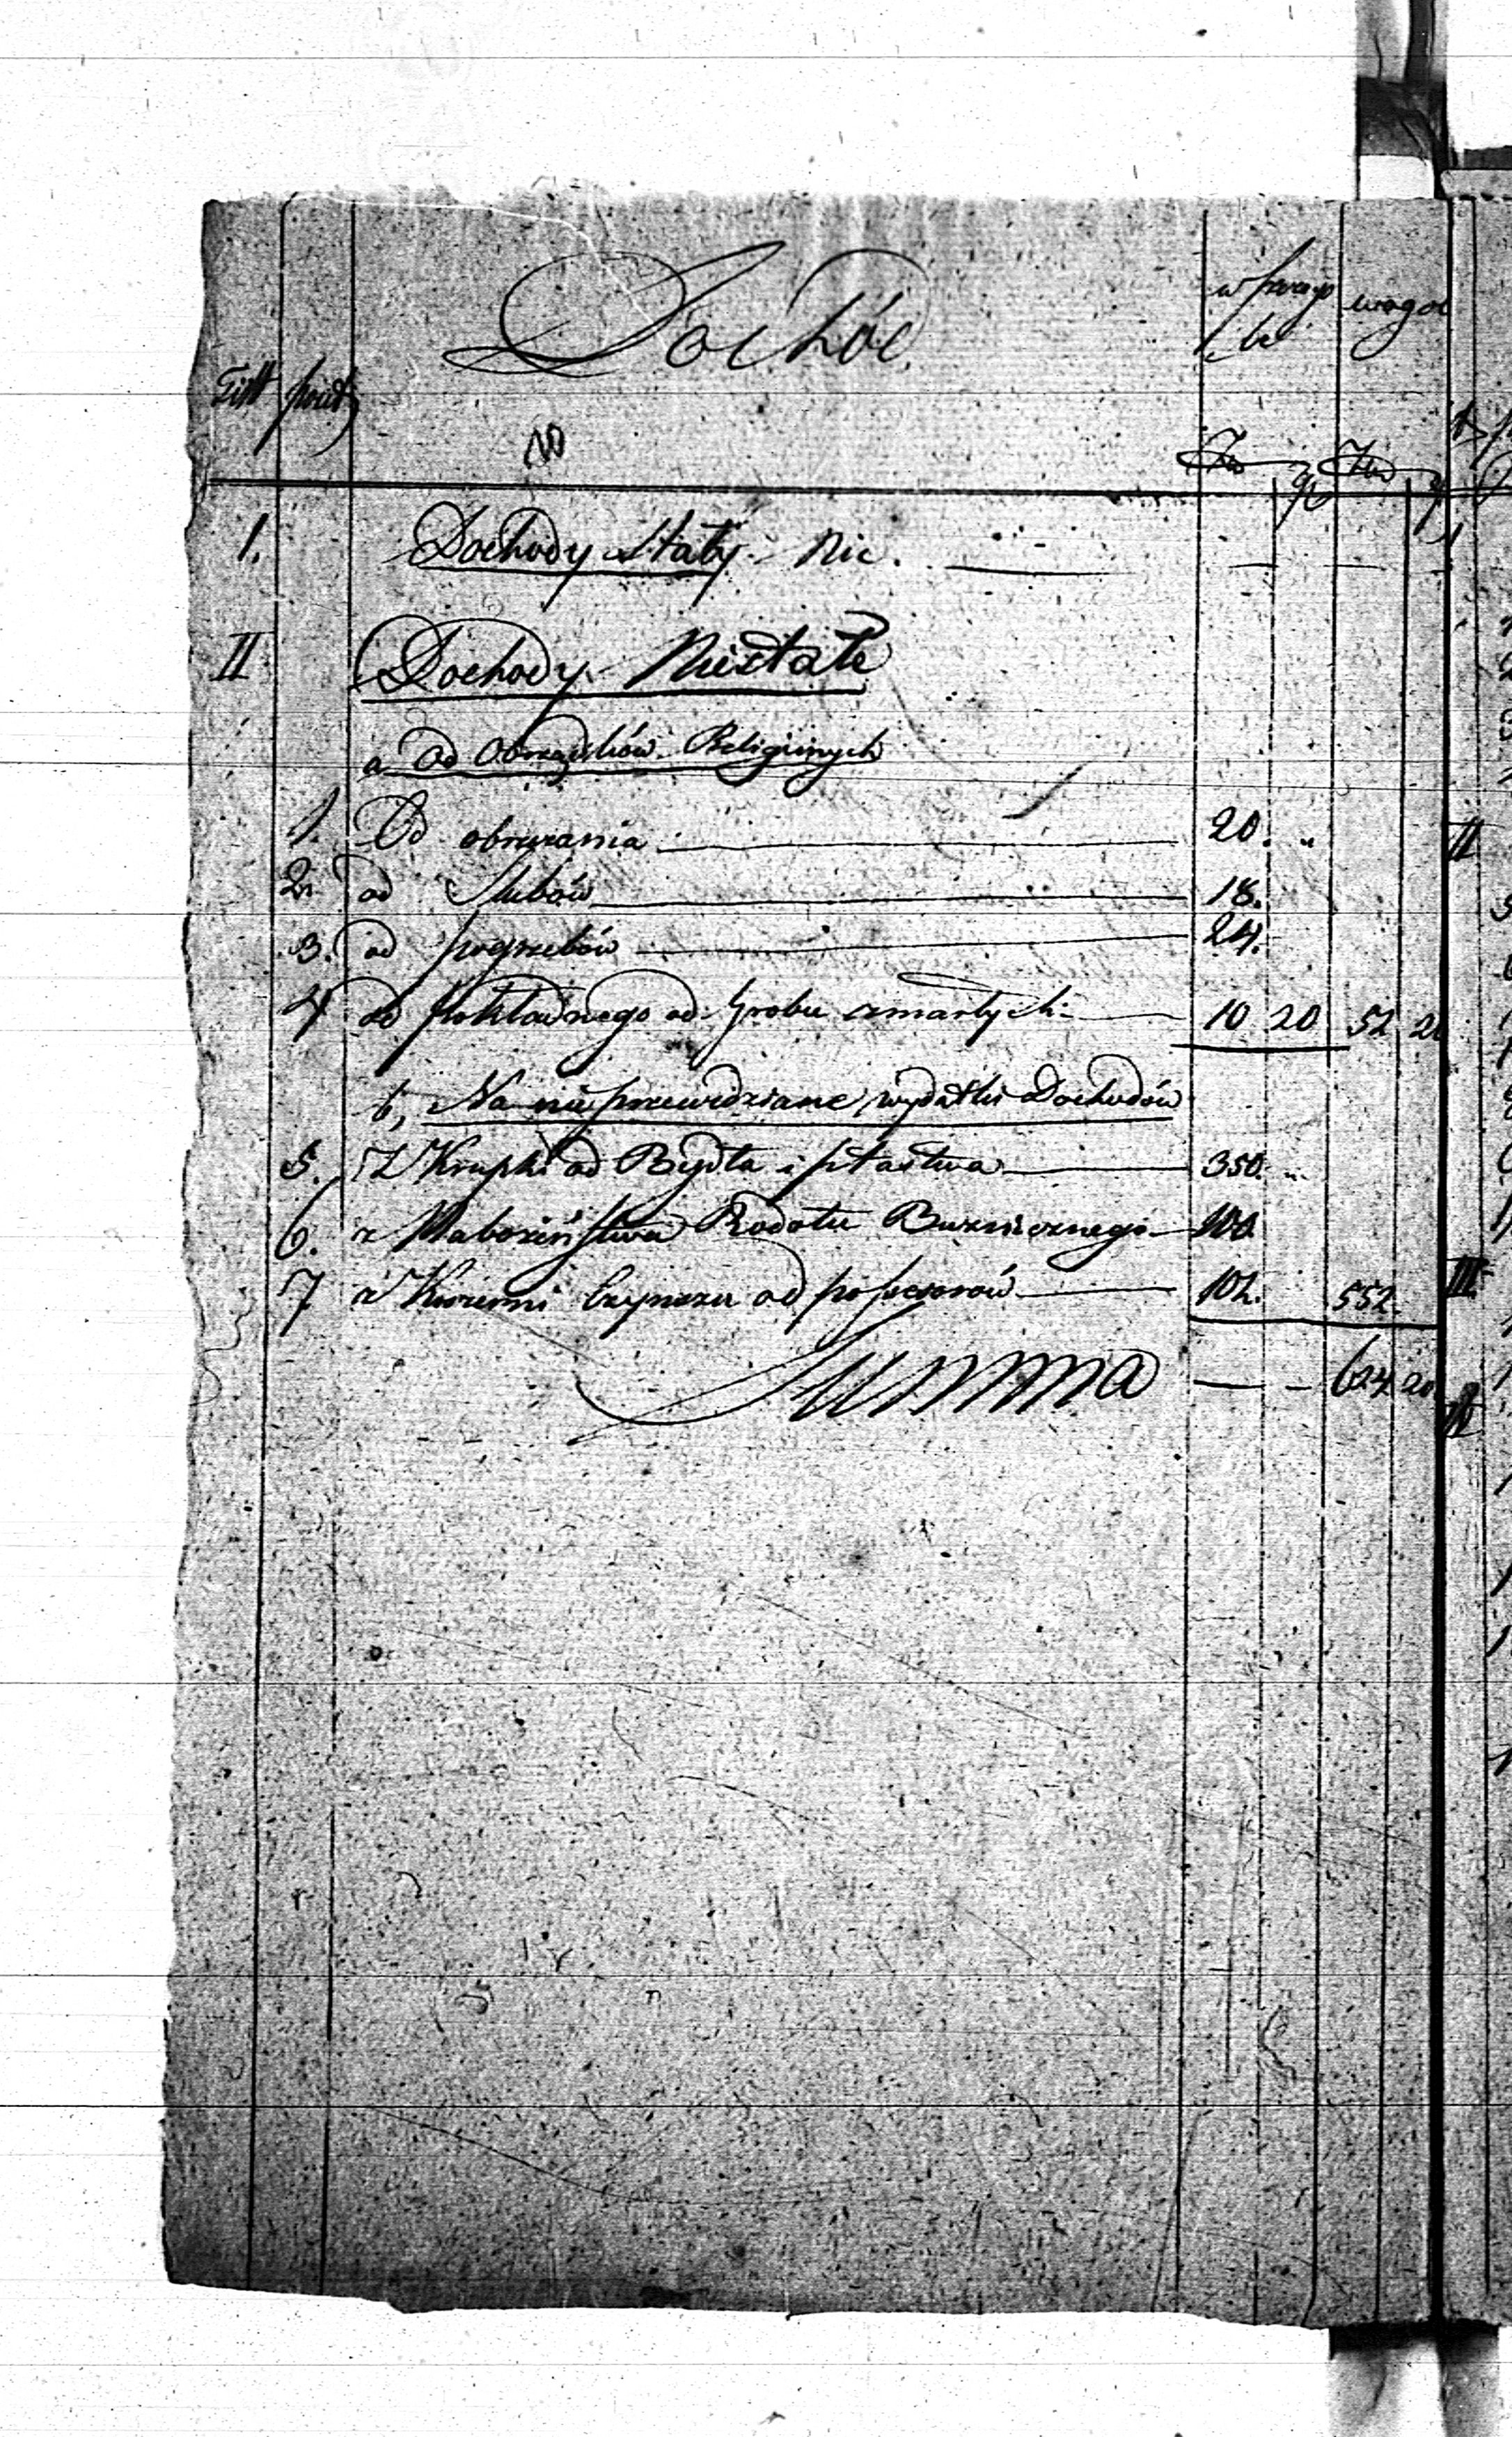 Dochód
w szcze wogól
Titt pozit
Złp gr Złp g
I. Dochody Stały. Nic.
II Dochody Niestałe
a Od Obrządków Religiinych
1. Od obrzezania 20. "
2. od Slubów 18.
3. od pogrzebów 24.
4. od pokładnego od Grobu zmarłych 10 20 52 2
b, Na nieprzewidziane wydatki Dochodów
5. Z Krupki od Bydła i ptastwa 350. "
6. z Naboźeństwa Rodału Buznicznego 100.
7 z Czynszu od 102. 552.
Summa 624 20